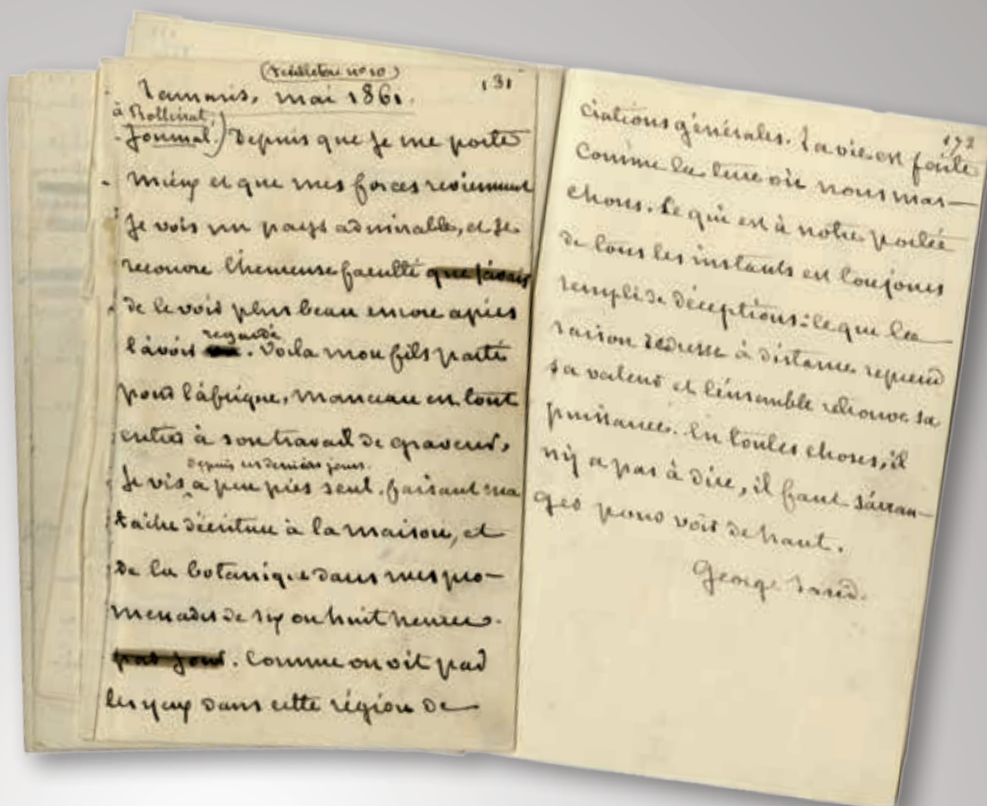 (feuilleton no 10)
131
Tamaris, mai 1861.
à Rollinat,
Journal.) Depuis que je me porte
mieux et que mes forces reviennent
je vois un pays admirable, et je
recouvre l'heureuse faculté que j'avais
de le voir plus beau encore après
regardé
l'avoir . Voilà mon fils parti
pour l'afrique. Manceau est tout
entier à son travail de graveur.
depuis ces derniers jours.
Je vis à peu près seul. faisant ma
tâche d'écriture à la maison, et
de la botanique dans mes pro-
menades de six ou huit heures.
par jour. Comme on vit par
les yeux dans cette région de
172
ciations générales. La vie est faite
comme la terre où nous mar-
chons. Ce qui est à notre portée
de tous les instants est toujours
rempli de déceptions: ce que la
raison redresse à distance reprend
sa valeur et l'ensemble retrouve sa
puissance. En toutes choses, il
n'y a pas à dire, il faut s'arran-
ger pour voir de haut.
George Sand.